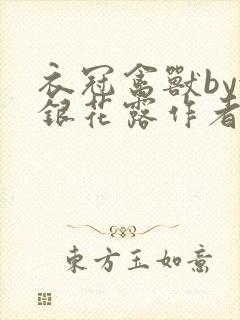 衣冠禽獸by
銀花露作者
東方玉如意